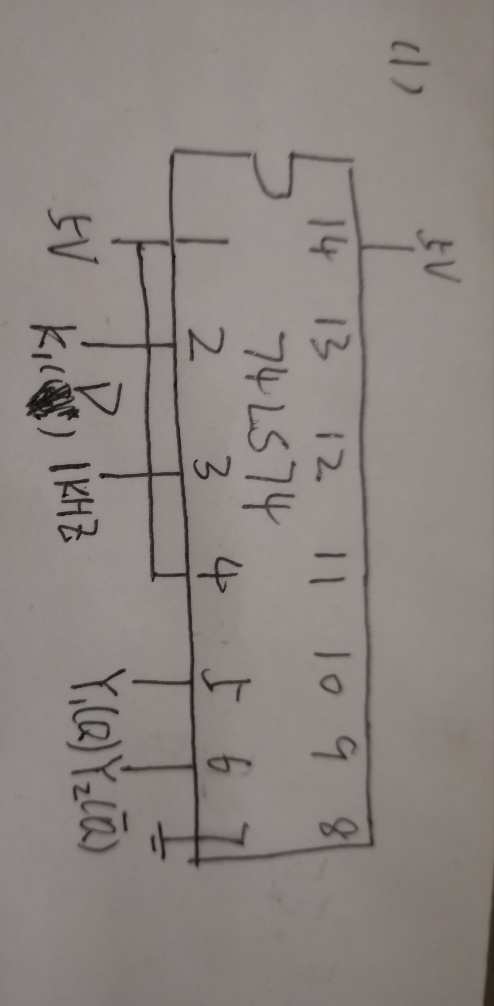 (1)
5V
14 13 12 11 10 9 8
74LS74
1 2 3 4 5 6 7
5V K1( D ) 1KHZ Y1(Q) Y2(Q̅)